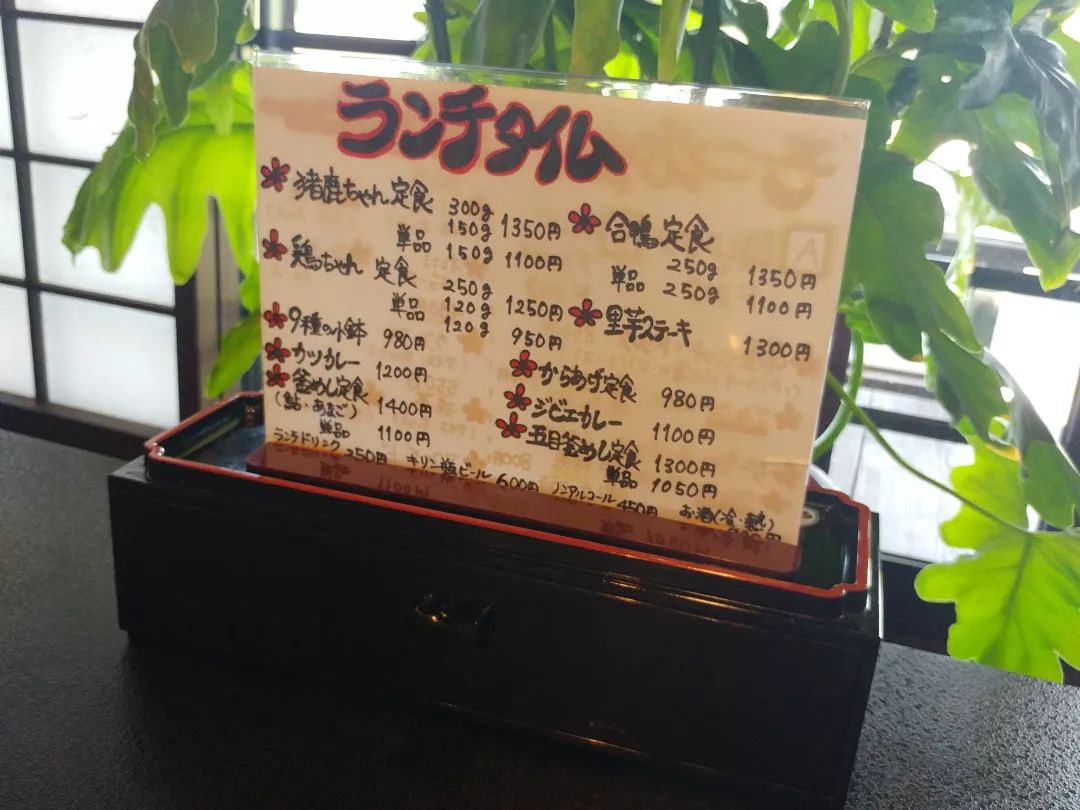 ランチタイム
猪鹿ちゃん定食 300g
150g 1350円
単品 150g 1100円
鶏ちゃん 定食 250g
120g 1250円
単品 120g 950円
9種の小鉢 980円
カツカレー 1200円
釜めし定食 1400円
(鮎・あまご)
単品 1100円
合鴨定食
250g 1350円
単品 250g 1100円
里芋ステーキ
1300円
からあげ定食 980円
ジビエカレー 1100円
五目釜めし定食 1300円
単品 1050円
ランチドリンク 250円 キリン瓶ビール 600円 ノンアルコール 450円 お酒(冷・熱)